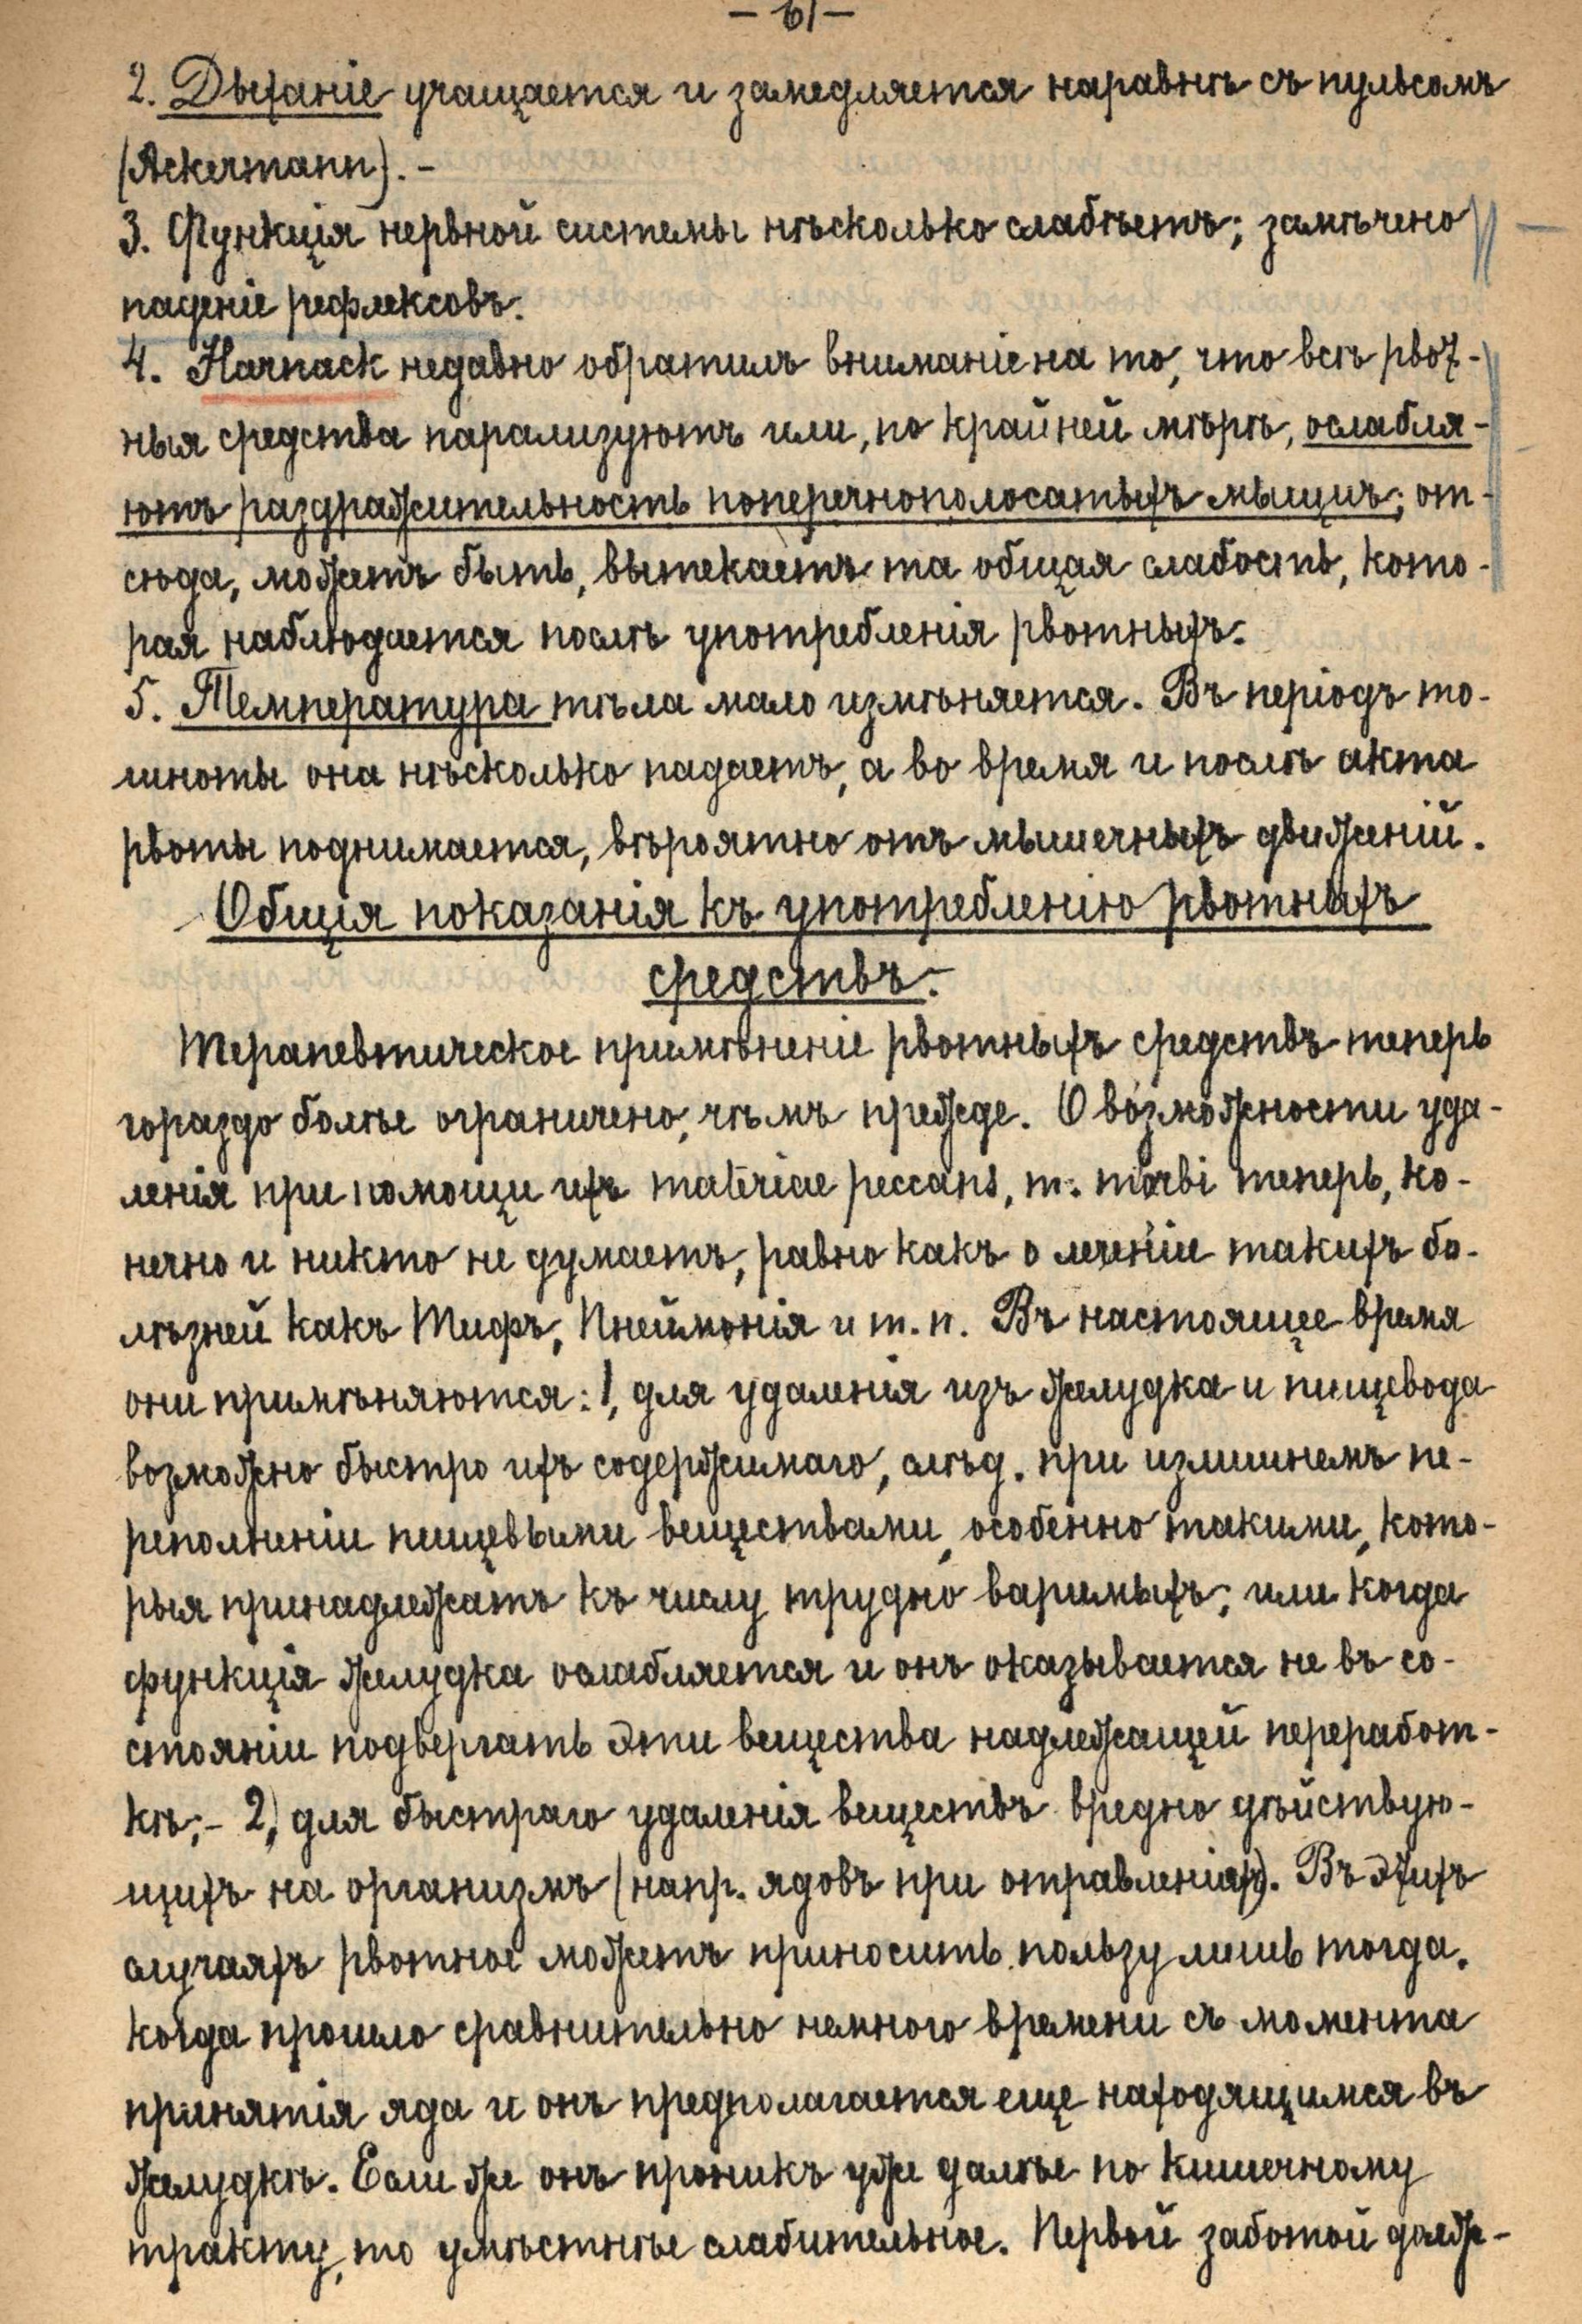 – 61 –
2. Дыханіе учащается и замедляется наравнѣ съ пульсомъ
(Ackermann). –
3. Функція нервной системы нѣсколько слабѣетъ; замѣчено
паденіе рефлексовъ.
4. Harnack недавно обратилъ вниманіе на то, что всѣ рвот-
ныя средства парализуютъ или, по крайней мѣрѣ, ослабля-
ютъ раздражительность поперечнополосатыхъ мышцъ; от-
сюда, можетъ быть, вытекаетъ та общая слабость, кото-
рая наблюдается послѣ употребленія рвотныхъ.
5. Температура тѣла мало измѣняется. Въ періодъ то-
шноты она нѣсколько падаетъ, а во время и послѣ акта
рвоты поднимается, вѣроятно отъ мышечныхъ движеній.
Общія показанія къ употребленію рвотныхъ
средствъ.
Терапевтическое примѣненіе рвотныхъ средствъ теперь
гораздо болѣе ограничено, чѣмъ прежде. О возможности уда-
ленія при помощи ихъ materiae peccans, m. morbi теперь, ко-
нечно и никто не думаетъ, равно какъ о леченіи такихъ бо-
лѣзней какъ Тифъ, Пнеймонія и т. п. Въ настоящее время
они примѣняются: 1, для удаленія изъ желудка и пищевода
возможно быстро ихъ содержимаго, слѣд. при излишнемъ пе-
реполненіи пищевыми веществами, особенно такими, кото-
рыя принадлежатъ къ числу трудно варимыхъ; или когда
функція желудка ослабляется и онъ оказывается не въ со-
стояніи подвергать эти вещества надлежащей переработ-
кѣ; – 2, для быстраго удаленія веществъ вредно дѣйствую-
щихъ на организмъ (напр. ядовъ при отравленіяхъ). Въ этихъ
случаяхъ рвотное можетъ приносить пользу лишь тогда,
когда прошло сравнительно немного времени съ момента
принятія яда и онъ предполагается еще находящимся въ
желудкѣ. Если же онъ проникъ уже далѣе по кишечному
тракту, то умѣстнѣе слабительное. Первой заботой долж-